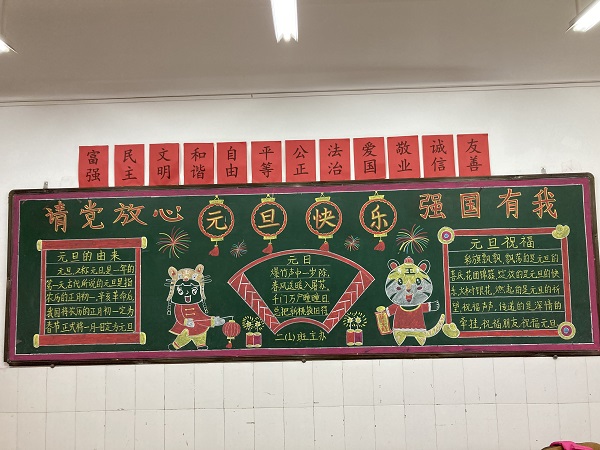 富强
民主
文明
和谐
自由
平等
公正
法治
爱国
敬业
诚信
友善
请党放心 元旦快乐 强国有我
元旦的由来
元旦,又称元旦是一年的
第一天
农历的正月初一,辛亥革命后,
我国将农历的正月初一定为
春节正式将一月一日定为元旦
元日
爆竹声中一岁除,
春风送暖入屠苏。
千门万户曈曈日,
总把新桃换旧符
二(1)班 主办
元旦祝福
彩旗飘飘,飘荡的是元旦的
喜庆,花团锦簇,绽放的是元旦的快
乐,火树银花,燃起的是元旦的祈
望,祝福声声,传递的是深情的
牵挂,祝福朋友,祝福元旦